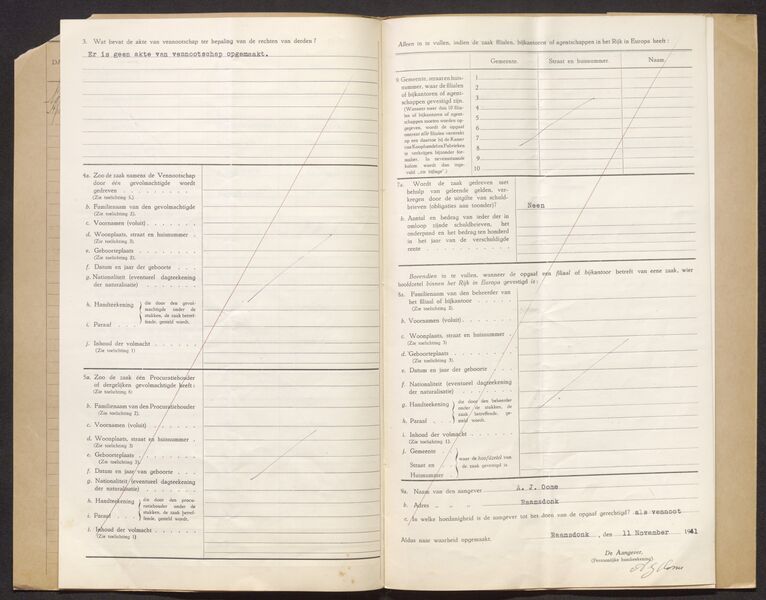 3. Wat bevat de akte van vennootschap ter bepaling van de rechten van derden ?
Er is geen akte van vennootschap opgemaakt.
4a. Zoo de zaak namens de Vennootschap
door één gevolmachtigde wordt
gedreven
(Zie toelichting 5.)
b. Familienaam van den gevolmachtigde
(Zie toelichting 2).
c. Voornamen (voluit)
d. Woonplaats, straat en huisnummer
(Zie toelichting 3).
e. Geboorteplaats
(Zie toelichting 3).
f. Datum en jaar der geboorte
g. Nationaliteit (eventueel dagteekening
der naturalisatie)
h. Handteekening
i. Paraaf
die door den gevol-
machtigde onder de
stukken, de zaak betref-
fende, gesteld wordt.
j. Inhoud der volmacht
(Zie toelichting 1)
5a. Zoo de zaak één Procuratiehouder
of dergelijken gevolmachtigde heeft:
(Zie toelichting 6)
b. Familienaam van den Procuratiehouder
(Zie toelichting 2).
c. Voornamen (voluit)
d. Woonplaats, straat en huisnummer
(Zie toelichting 3)
e. Geboorteplaats
(Zie toelichting 3).
f. Datum en jaar van geboorte
g. Nationaliteit (eventueel dagteekening
der naturalisatie)
h. Handteekening
i. Paraaf
die door den procu-
ratiehouder onder de
stukken, de zaak betref-
fende, gesteld wordt.
j. Inhoud der volmacht
(Zie toelichting 1)
Alleen in te vullen, indien de zaak filialen, bijkantoren of agentschappen in het Rijk in Europa heeft :
Gemeente. Straat en huisnummer. Naam.
6 Gemeente, straat en huis-
nummer, waar de filialen
of bijkantoren of agent-
schappen gevestigd zijn.
(Wanneer meer dan 10 filia-
len of bijkantoren of agent-
schappen moeten worden op-
gegeven, wordt de opgaaf
omtrent alle filialen verstrekt
op een daartoe bij de Kamer
van Koophandel en Fabrieken
te verkrijgen bijzonder for-
mulier. In nevenstaande
kolom wordt dan inge-
vuld „zie bijlage".)
1
2
3
4
5
6
7
8
9
10
7a. Wordt de zaak gedreven met
behulp van geleende gelden, ver-
kregen door de uitgifte van schuld-
brieven (obligaties aan toonder)?
Neen
b. Aantal en bedrag van ieder der in
omloop zijnde schuldbrieven, het
onderpand en het bedrag ten honderd
in het jaar van de verschuldigde
rente
Bovendien in te vullen, wanneer de opgaaf een filiaal of bijkantoor betreft van eene zaak, wier
hoofdzetel binnen het Rijk in Europa gevestigd is :
8a. Familienaam van den beheerder van
het filiaal of bijkantoor
(Zie toelichting 2).
b. Voornamen (voluit)
c. Woonplaats, straat en huisnummer
(Zie toelichting 3)
d. Geboorteplaats
(Zie toelichting 3).
e. Datum en jaar der geboorte
f. Nationaliteit (eventueel dagteekening
der naturalisatie)
g. Handteekening
h. Paraaf
die door den beheerder
onder de stukken, de
zaak betreffende, ge-
steld wordt.
i. Inhoud der volmacht
(Zie toelichting 1).
j. Gemeente
Straat en
Huisnummer
waar de hoofdzetel van
de zaak gevestigd is
9a. Naam van den aangever A. J. Oome
b. Adres „ „ „ Raamsdonk
c. In welke hoedanigheid is de aangever tot het doen van de opgaaf gerechtigd? als vennoot
Aldus naar waarheid opgemaakt. Raamsdonk, den 11 November 1941
De Aangever,
(Persoonlijke handteekening)
A J Oome